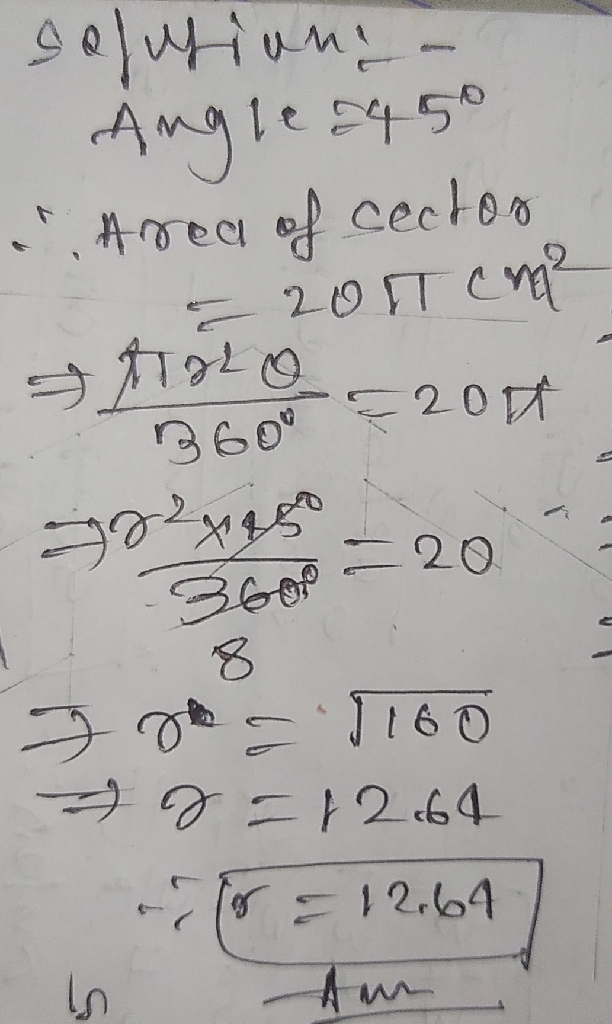 Solution:-
Angle = 45°
∴ Area of sector
= 20π cm²
⇒ πr²θ / 360° = 20π
⇒ r² × 45° / 360° = 20
8
⇒ r = √160
⇒ r = 12.64
∴ r = 12.64
Ans